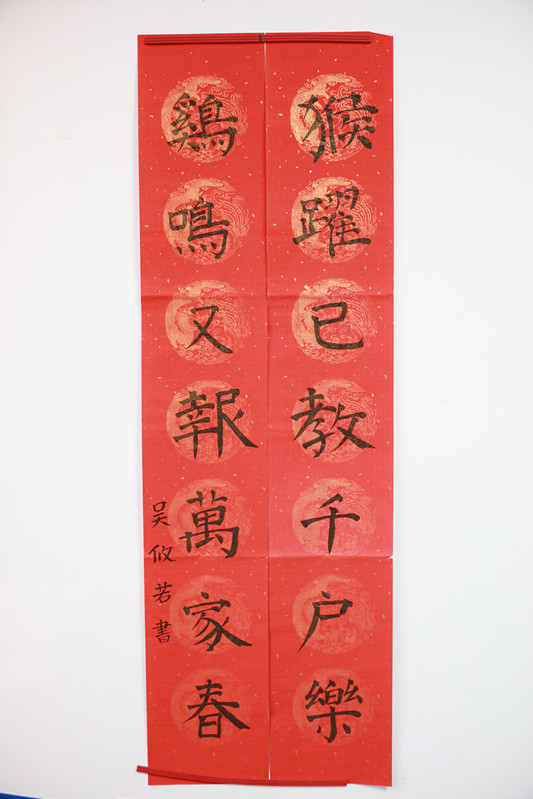 猴躍已教千户樂
鷄鳴又報萬家春
吴攸若書